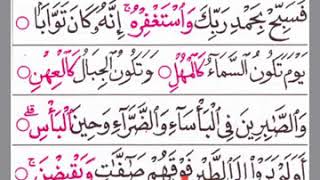 فَسَبِّحْ بِحَمْدِ رَبِّكَ وَاسْتَغْفِرْهُ ۚ اِنَّهٗ كَانَ تَوَّابًا ○
يَوْمَ تَكُوْنُ السَّمَآءُ كَالْمُهْلِ ○ وَتَكُوْنُ الْجِبَالُ كَالْعِهْنِ ○
وَالصّٰبِرِيْنَ فِى الْبَاْسَآءِ وَالضَّرَّآءِ وَحِيْنَ الْبَاْسِ ۗ
اَوَلَمْ يَرَوْا اِلَى الطَّيْرِ فَوْقَهُمْ صٰٓفّٰتٍ وَّيَقْبِضْنَ ۚ